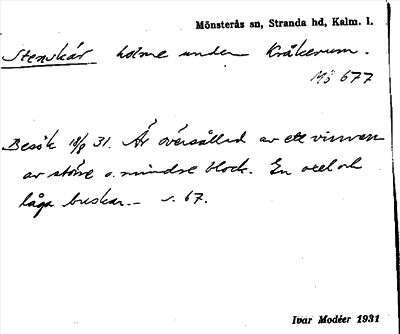 Mönsterås sn, Stranda hd, Kalm. l.
Stenskär holme under Kråkerum.
Mö 677
Besök 18/8 31. Är översållad av ett virrvarr
av större o. mindre block. En oxel och
låga buskar. – s. 67.
Ivar Modéer 1931